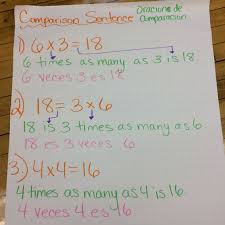 Comparison Sentence Oraciones de Comparación
1) 6 x 3 = 18
6 times as many as 3 is 18.
6 veces 3 es 18
2) 18 = 3 x 6
18 is 3 times as many as 6
18 es 3 veces 6
3.) 4 x 4 = 16
4 times as many as 4 is 16.
4 veces 4 es 16